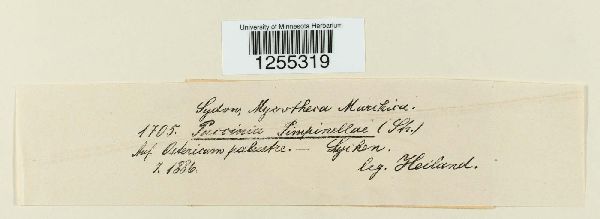 University of Minnesota Herbarium
1255319
Sydow, Mycotheca Marchica.
1705. Puccinia Pimpinellae (Str.)
Auf Ostericum palustre. — Lycken.
7. 1886. leg. Heiland.